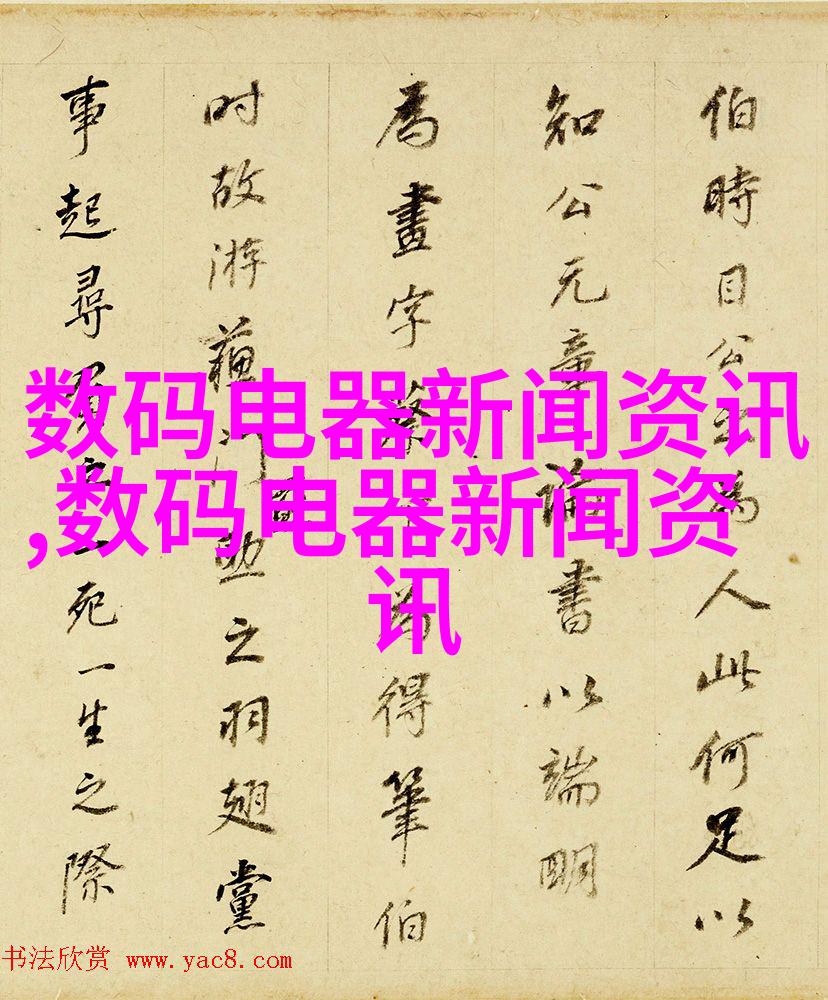 伯時目公為人此何足以
知公元章論書以端明
為畫字為得筆伯
时故游蘓門助之羽翅黨
事起尋一死一生之際
数码电器新闻资讯
,数码电器新闻资
讯
书法欣赏 www.yac8.com